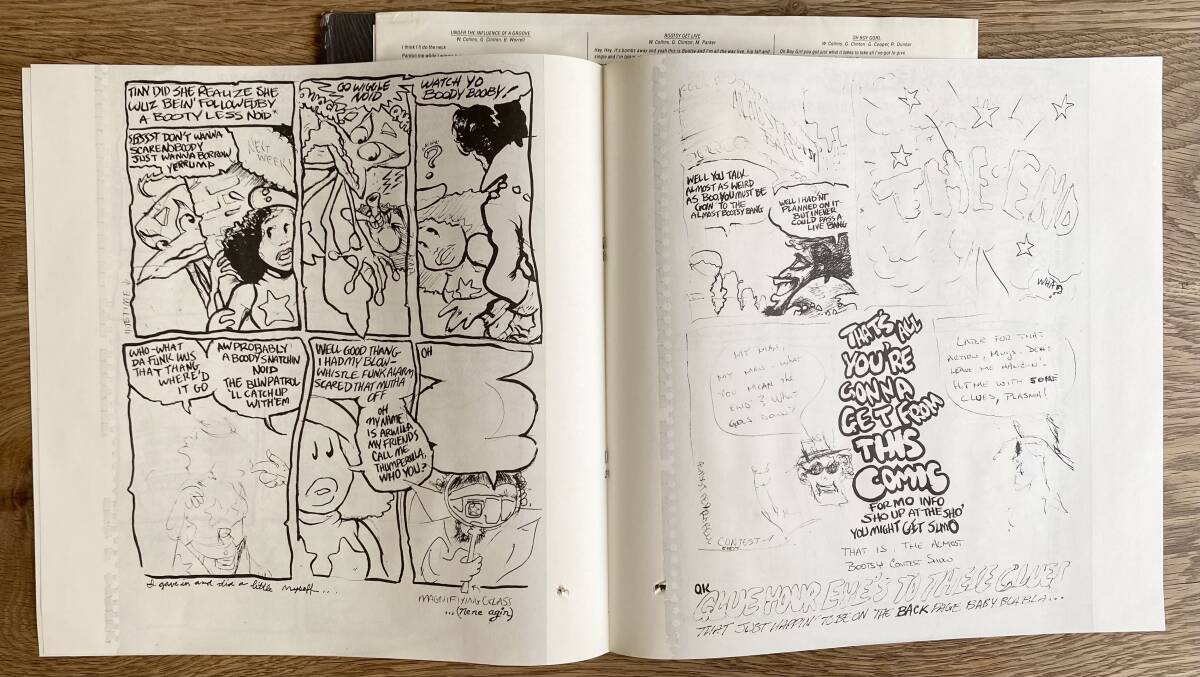 UNDER THE INFLUENCE OF A GROOVE
W. Collins, G. Clinton, B. Worrell
I think I'll do the neck
BOOTSY GET LIVE
W. Collins, G. Clinton, M. Parker
Hey, Hey, it's bombs away and yeah this is Bootsy and I'm all the way live, hip tall and
OH BOY GORL
W. Collins, G. Clinton, G. Cooper, R. Dunbar
Oh Boy Gorl you got just what it takes to take all I've got to give
TINY DID SHE REALIZE SHE
WUZ BEIN' FOLLOWED BY
A BOOTY LESS NOID
PSSSST DON'T WANNA
SCARENOBODY
JUST WANNA BORROW
YERRUMP
NEXT
WEEK!
GO WIGGLE
NOID
WATCH YO
BOODY BOOBY!
?
WHO-WHAT
DA FUNK WUS
THAT THANG
WHERE'D
IT GO
AW PROBABLY
A BOODY SNATCHIN
NOID
THE BUNPATROL
'LL CATCH UP
WITH'EM
WELL GOOD THANG
I HAD MY BLOW-
WHISTLE FUNK ALARM,
SCARED THAT MUTHA
OFF
OH
MY NAME
IS ARWILLA
MY FRIENDS
CALL ME
THUMPERELLA,
WHO YOU?
OH
I gave in and did a little myself...
MAGNIFYING GLASS
...(Nene agin)
WELL YOU TALK
ALMOST AS WEIRD
AS BOO, YOU MUST BE
GOIN' TO THE
ALMOST BOOTSY BANG
WELL I HADN'T
PLANNED ON IT
BUT I NEVER
COULD PASS A
LIVE BANG
THE END
WHA?
MY MAN,
MY MAN.. WHAT
YOU MEAN THE
END? WHAT
GOES DOWN?
THAT'S ALL
YOU'RE
GONNA
GET FROM
THIS
COMIC
FOR MO INFO
SHO UP AT THE SHO'
YOU MIGHT GET SUMO
THAT IS, THE ALMOST
BOOTSY CONTEST SHOW
LATER FOR THAT
ACTION, MUGS. DON'T
LEAVE ME HANGIN'!
HIT ME WITH SOME
CLUES, PLASMN!
CONTEST
OK
GLUE YOUR EYE'S TO THESE CLUES!
THAT JUST HAPPIN' TO BE ON THE BACK PAGE BABY BLABLA...